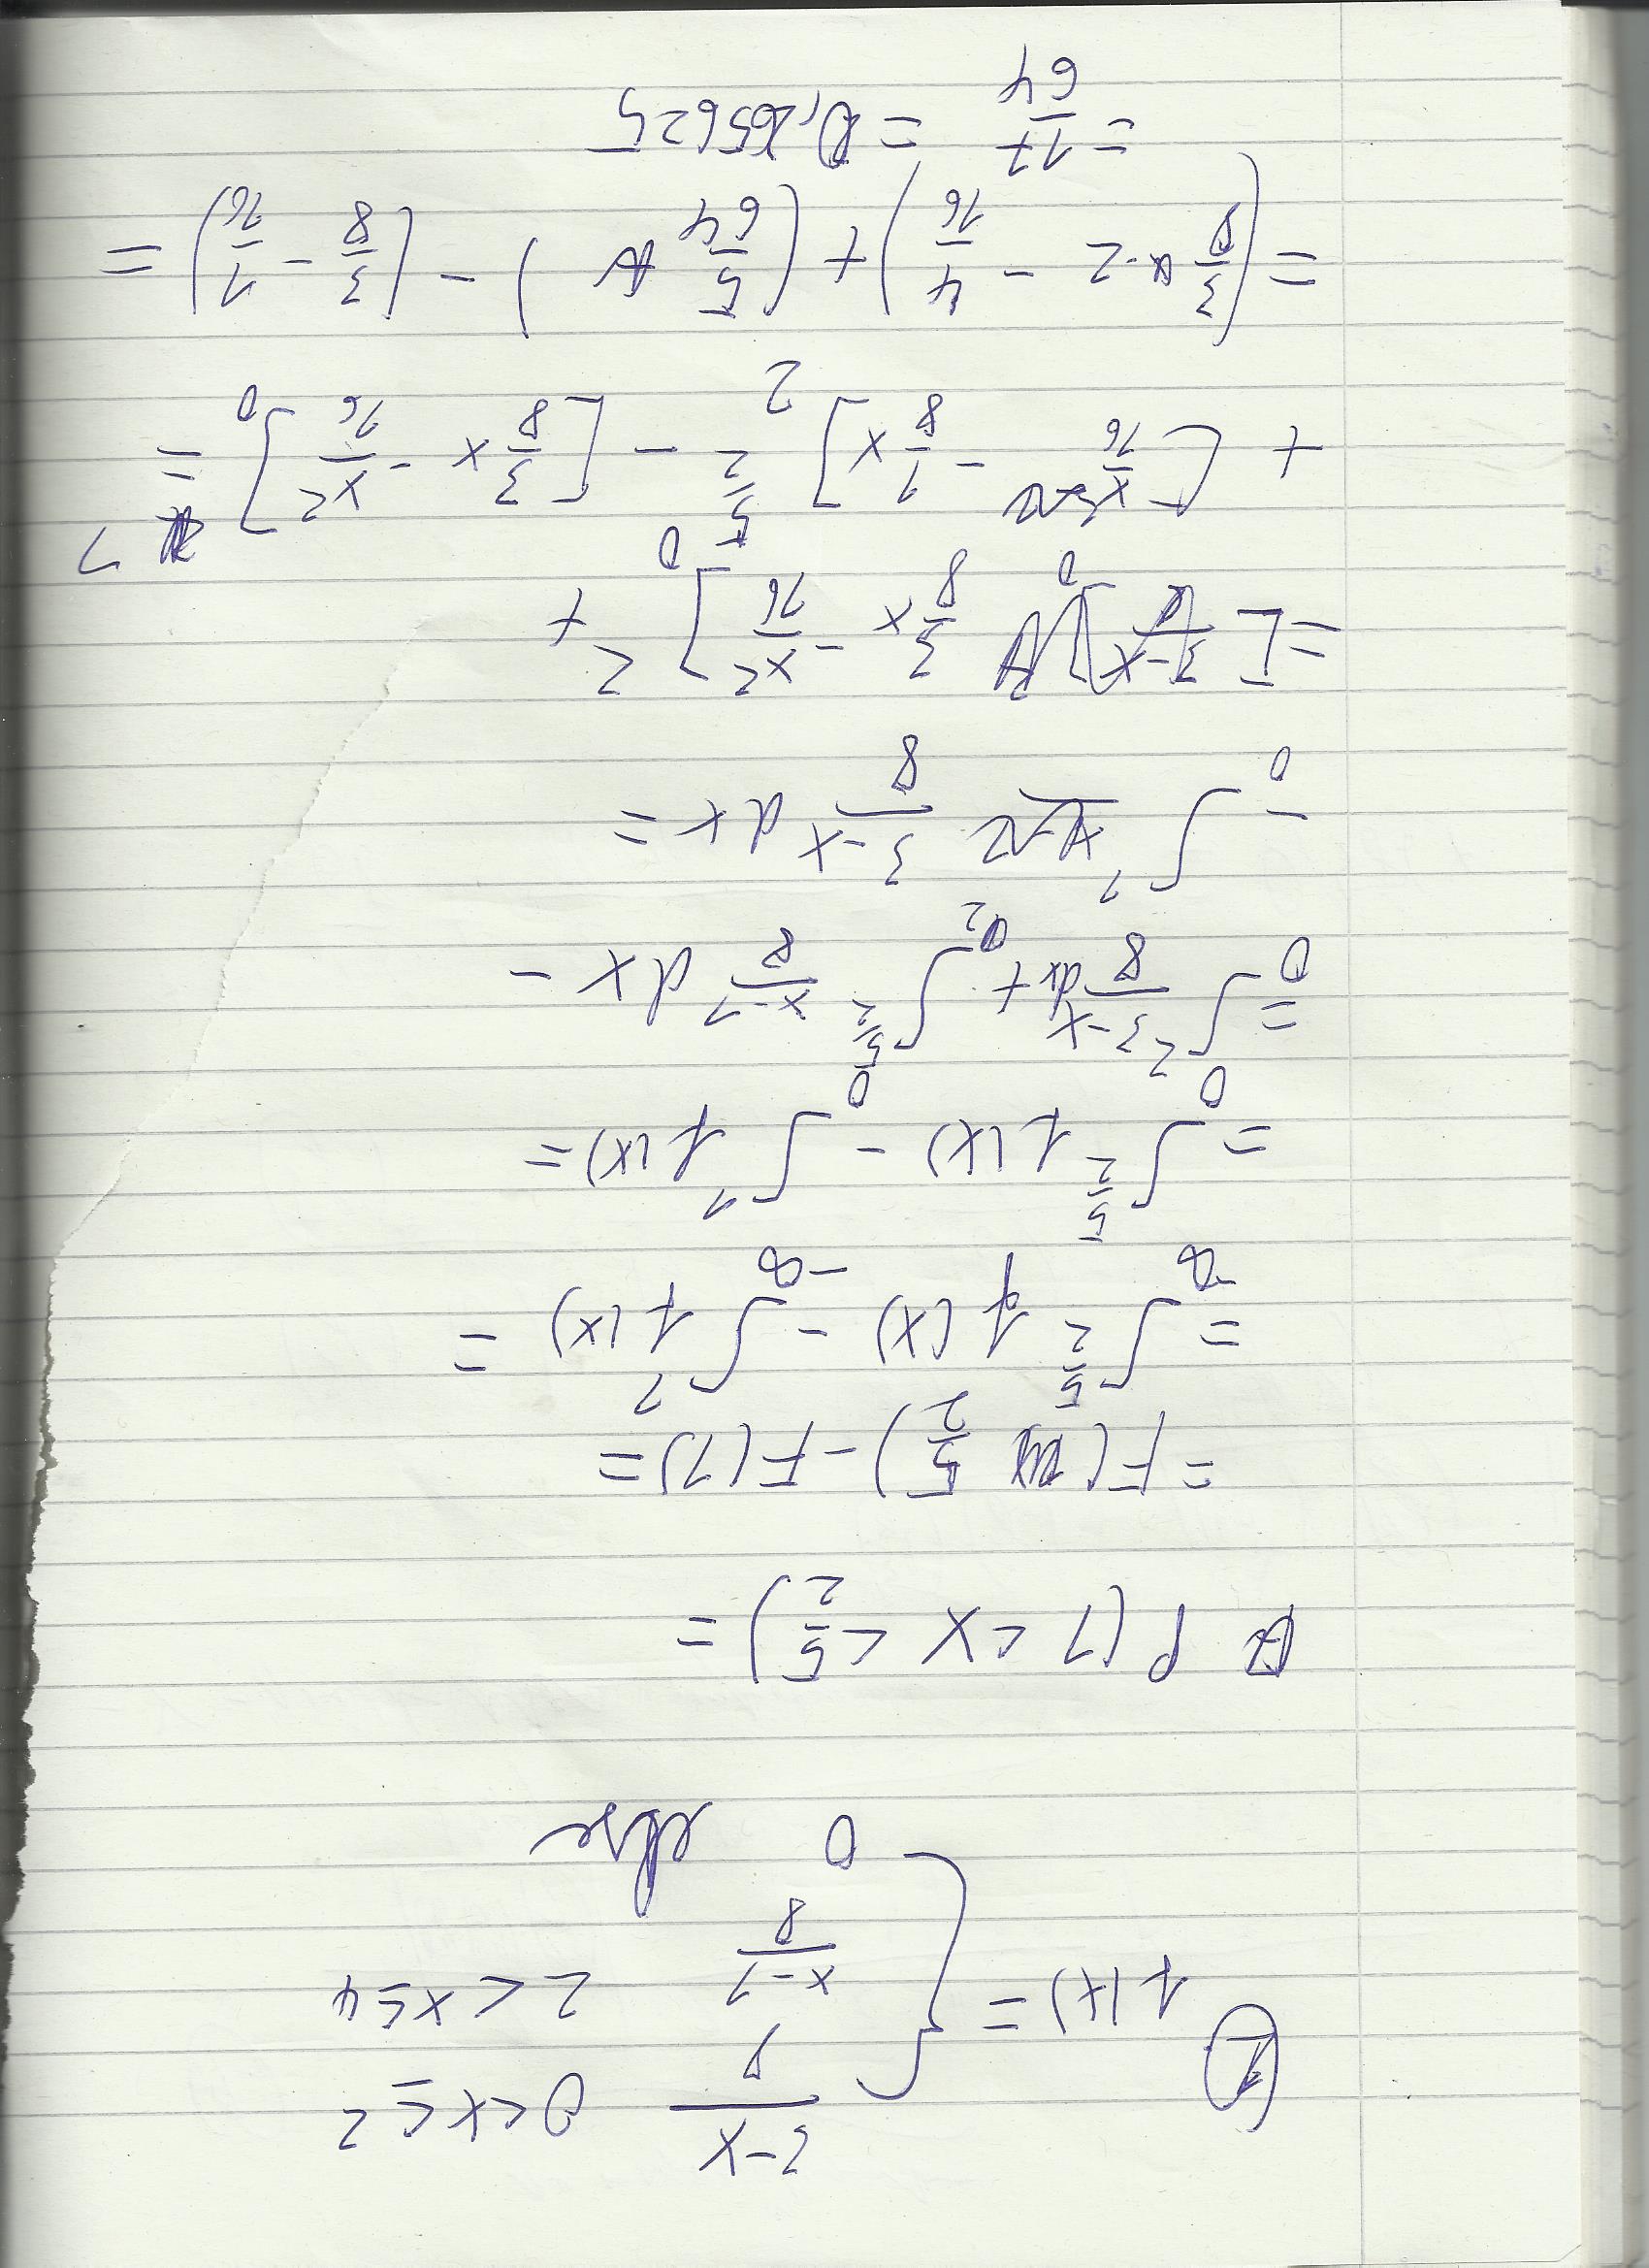 ①
3-x/8   0 < x ≤ 2
f(x) = {
x-1/8   2 < x ≤ 4
0   else
P(1 < X < 5/2) =
= F(5/2) - F(1) =
= ∫_{-∞}^{5/2} f(x) - ∫_{-∞}^{1} f(x) =
= ∫_0^{5/2} f(x) - ∫_0^1 f(x) =
= ∫_0^2 3-x/8 dx + ∫_2^{5/2} x-1/8 dx -
- ∫_0^1 3-x/8 dx =
= [3/8 x - x²/16]_0^2 +
+ [x²/16 - 1/8 x]_2^{5/2} - [3/8 x - x²/16]_0^1 =
= (3/8 · 2 - 4/16) + (5/64) - (3/8 - 1/16) =
= 17/64 = 0,265625